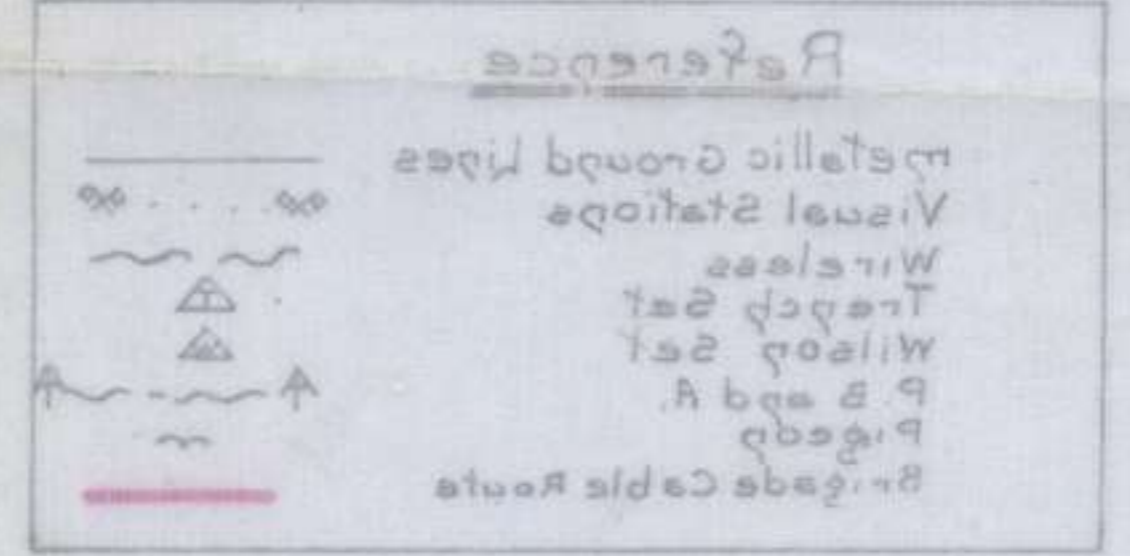 Reference
Metallic Ground Lines
Visual Stations
Wireless
Trench Set
Wilson Set
P. B and A.
Pigeon
Brigade Cable Route